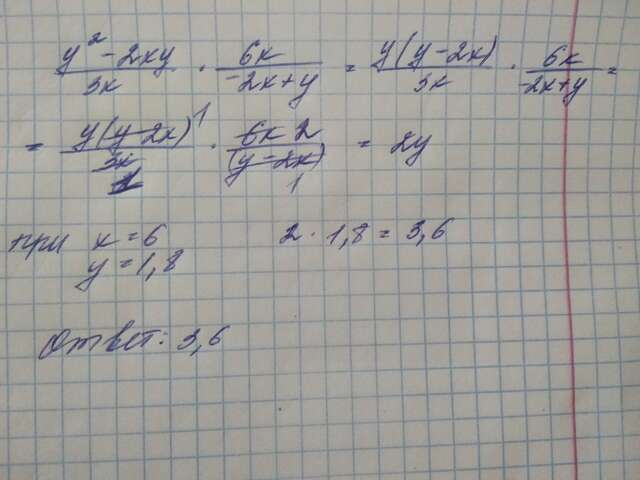 y² - 2xy / 3x · 6x / -2x+y = y(y-2x) / 3x · 6x / -2x+y =
= y(y-2x) 1 / 3x 1 · 6x 2 / (y-2x) 1 = 2y
при x = 6 2 · 1,8 = 3,6
y = 1,8
Ответ: 3,6